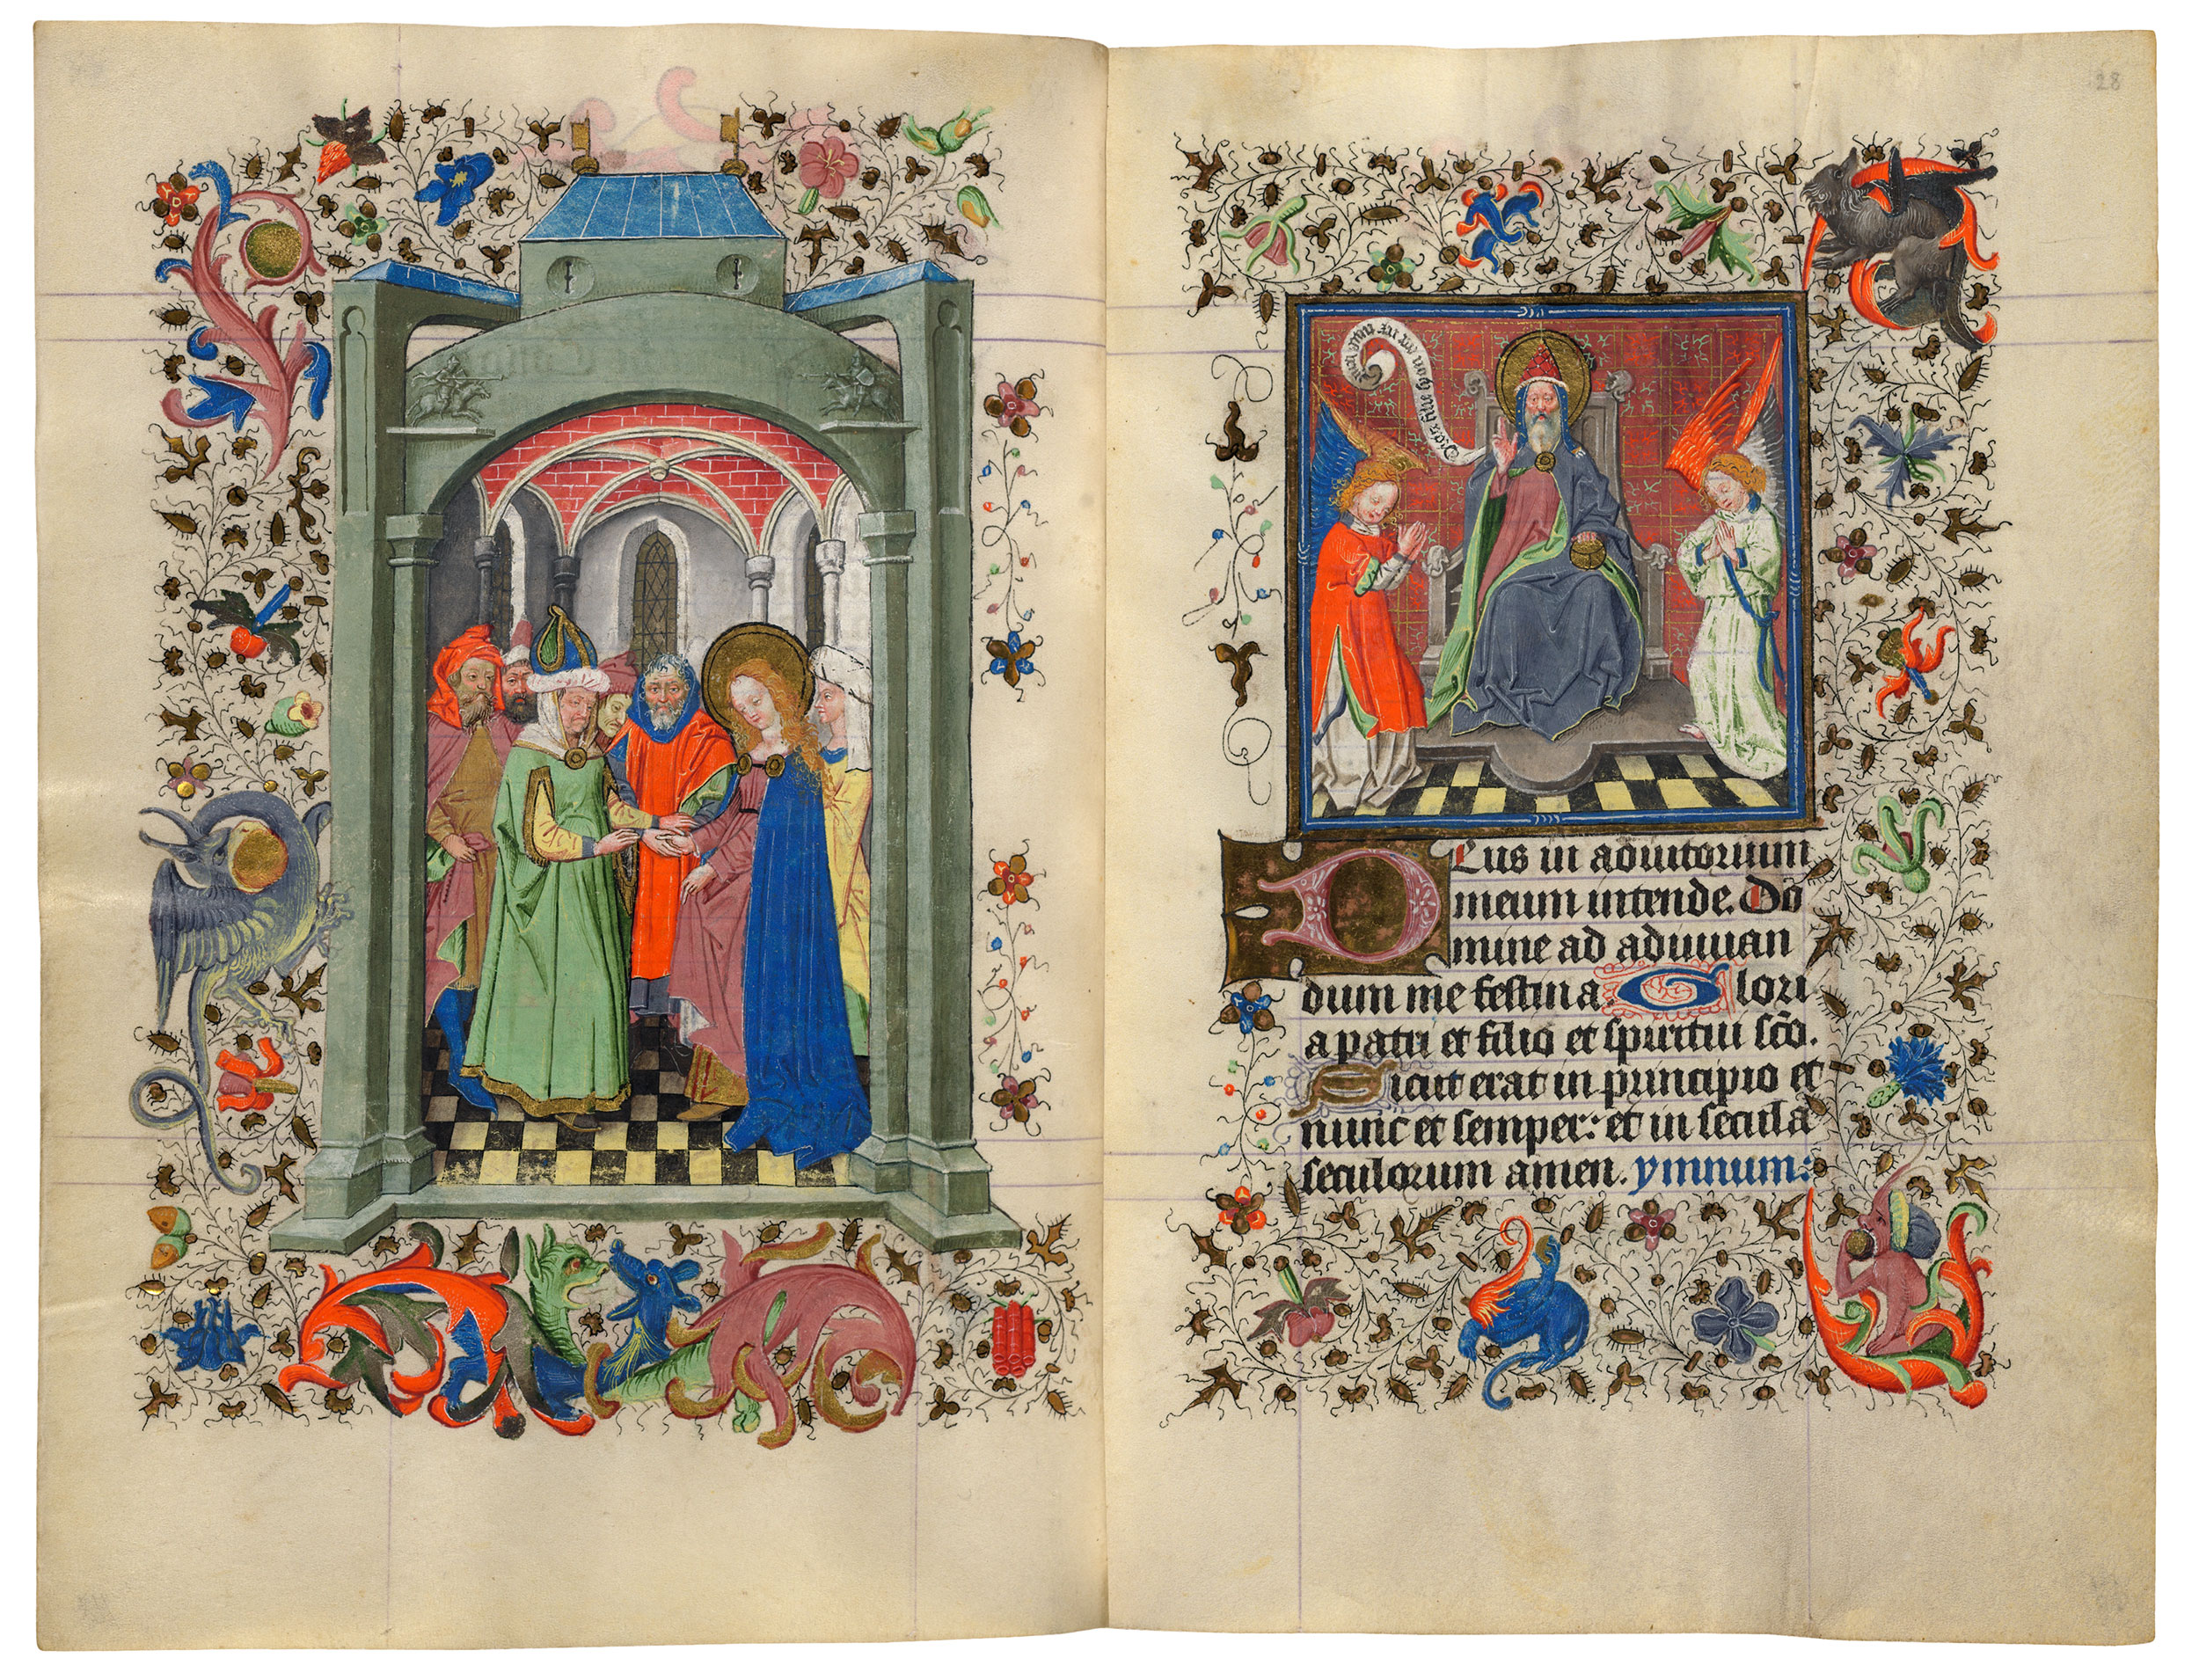 28
Deus in adiutorium
meum intende. Do
mine ad adiuuan
dum me festina. Glori
a patri et filio et spiritui sc̄o.
Sicut erat in principio et
nunc et semper: et in secula
seculorum amen. ymnum: